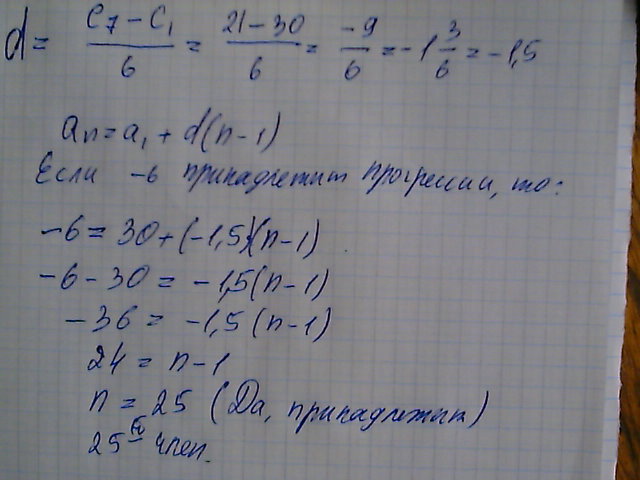 d = (C₇ − C₁)/6 = (21 − 30)/6 = −9/6 = −1 3/6 = −1,5
aₙ = a₁ + d(n−1)
Если −6 принадлежит прогрессии, то:
−6 = 30 + (−1,5)(n−1)
−6 − 30 = −1,5(n−1)
−36 = −1,5(n−1)
24 = n−1
n = 25 (Да, принадлежит)
25ый член.